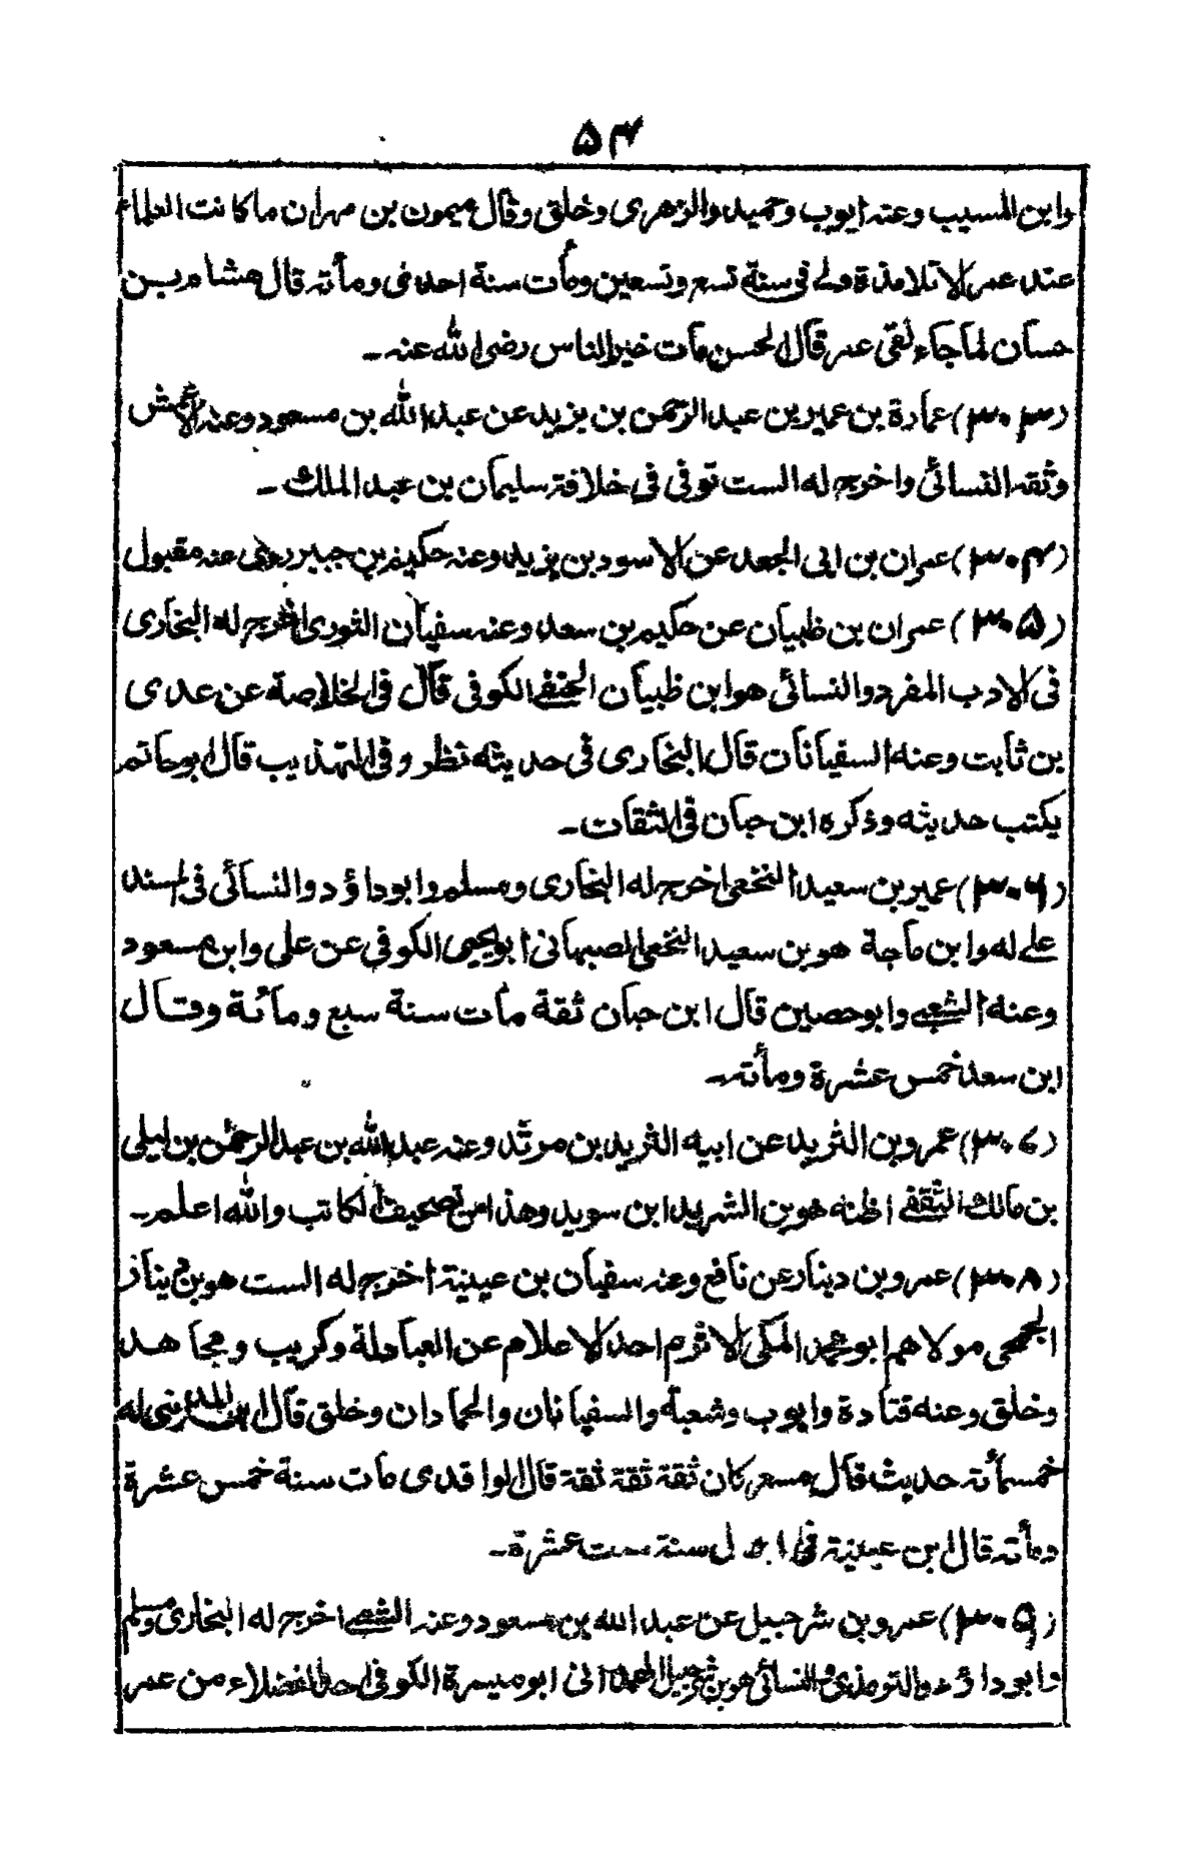 ۵۴
وابن المسيب وعنه ايوب وحميد والزهرى وخلق وقال ميمون بن مهران ما كانت العلماء
عند عمر الا تلامذة ولے فى سنة تسع وتسعين ومات سنة احدى ومأته قال هشام بن
حسان لما جاء لقى عمر قال الحسن مات خير الناس رضى الله عنه ـ
(۳۰۳) عمارة بن عمير بن عبد الرحمن بن يزيد عن عبد الله بن مسعود وعنه الاعمش
وثقه النسائى واخرج له الست توفى فى خلافة سليمان بن عبد الملك ـ
(۳۰۴) عمران بن ابى الجعد عن الاسود بن يزيد وعنه حكيم بن جبير روى عنه مقبول
(۳۰۵) عمران بن ظبيان عن حكيم بن سعد وعنه سفيان الثورى اخرج له البخارى
فى الادب المفرد والنسائى هو ابن ظبيان الحنفے الكوفى قال فى الخلاصة عن عدى
بن ثابت وعنه السفيانان قال البخارى فى حديثه نظر وفى التهذيب قال ابو حاتم
يكتب حديثه وذكره ابن حبان فى الثقات ـ
(۳۰۶) عمير بن سعيد النخعى اخرج له البخارى ومسلم وابو داؤد والنسائى فى المسند
علے له وابن ماجة هو بن سعيد النخعى الصبهانى ابو يحيى الكوفى عن على وابن مسعود
وعنه الشعبے وابو حصين قال ابن حبان ثقة مات سنة سبع ومائة وقال
ابن سعد خمس عشرة ومأته ـ
(۳۰۷) عمرو بن الثريد عن ابيه الثريد بن مرثد وعنه عبد الله بن عبد الرحمٰن بن ليلى
بن مالك الثقفے اظنه هو بن الشريد ابن سويد وهذا من تصحيف الكاتب والله اعلم ـ
(۳۰۸) عمرو بن دينار عن نافع وعنه سفيان بن عيينة اخرج له الست هو بن دينار
الجمحى مولاهم ابو محمد المكى الاثرم احد الاعلام عن العبادلة وكريب ومجاهد
وخلق وعنه قتادة وايوب وشعبة والسفيانان والحمادان وخلق قال ابن المدينى له
خمسمأته حديث قال مسعر كان ثقة ثقة ثقة قال الواقدى مات سنة خمس عشرة
ومأته قال ابن عيينة فى سنة ست عشرة ـ
(۳۰۹) عمرو بن شرحبيل عن عبد الله بن مسعود وعنه الشعبے اخرج له البخارى ومسلم
وابو داؤد والترمذى والنسائى هو بن شرحبيل الهمدانى ابو ميسرة الكوفى احد الفضلاء من عمر